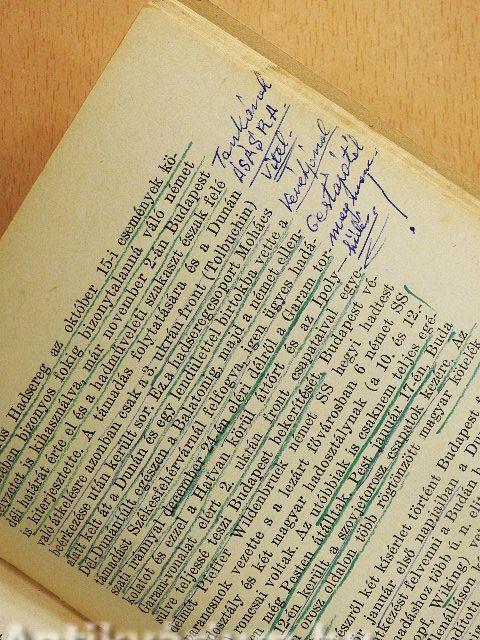 Tankának
ÁSÁSRA
ítél-
hülő
az október 15-i események kö-
fokig bizonytalanná váló német
kihasználva, már november 2-án Budapest
és a hadműveleti szakaszt észak felé
kiterjesztette. A támadás folytatására és a Dunán
való átkelésre azonban csak a 3. ukrán front (Tolbuchin)
beérkezése után került sor. Ez a hadseregcsoport Mohács
alatt kelt át a Dunán és egy lendülettel birtokba vette a
Dél-Dunántúlt egészen a Balatonig, majd a német ellen-
támadást Székesfehérvárnál felfogva, igen ügyes hadá-
szati irányban december 24-én elért délről a Garam tor-
kolatot és ezzel a Hatvan körül áttört és az Ipoly—
Garam-vonalat elért 2. ukrán front csapataival egye-
sülve teljessé tette Budapest bekerítését. Budapest vé-
delmét Pfeffer Wildenbruck német SS hegyi hadtest
parancsnok vezette s a lezárt fővárosban 6 német SS
osztály és két magyar hadosztálynak (a 10. és 12.)
roncsai voltak. Az utóbbiak is csaknem teljes egé-
szükben átálltak. Pest január 17-én, Buda
12-én került a szovjetorosz csapatok kezére. A
orosz oldalon több rögtönzött magyar kötelék
ról két kísérlet történt Budapest
január első napjaiban a Dunán
felvenni a Budán
több ú. n. elit
Wiking)